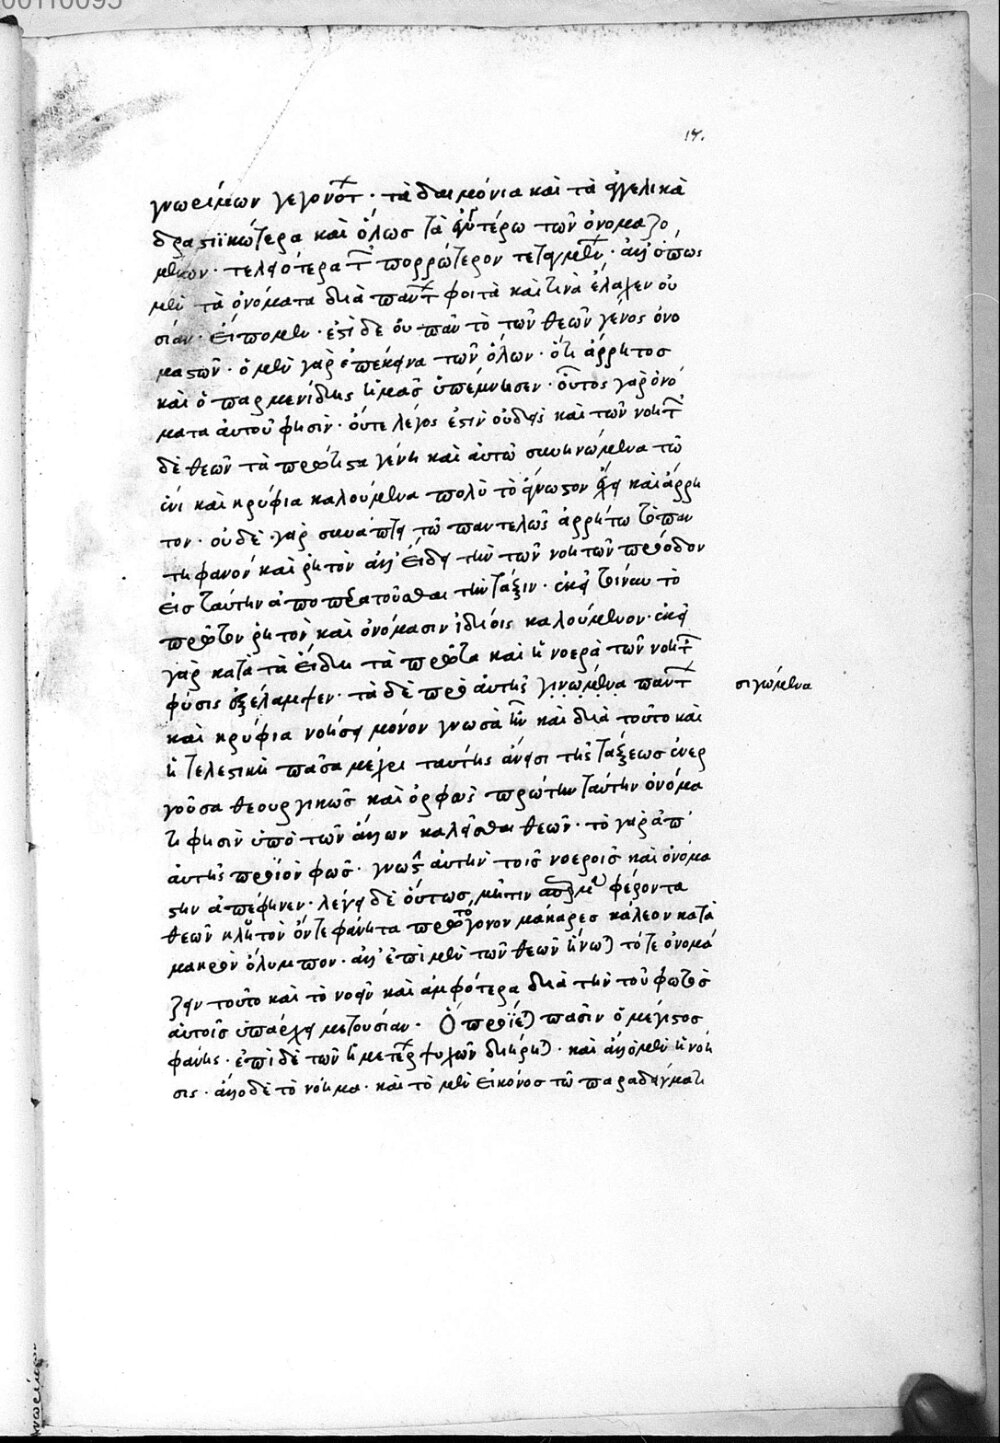 00110095
17.
γνωρίμων γεγονότ · τὰ δαιμόνια καὶ τὰ ἀγγελικὰ
δραστικώτερα καὶ ὅλως τὰ ἐγγυτέρω τῶν ὀνομαζο
μένων · τελειότερα τ πορρώτερον τεταγμέν · ἀλλ' ὅπως
μὲν τὰ ὀνόματα διὰ πάντ φοιτᾶ καὶ τίνα ἔλαχεν οὐ
σίαν · εἴπομεν · ἔστι δὲ οὐ πᾶν τὸ τῶν θεῶν γένος ὀνο
μαστῶν · ὁ μὲν γὰρ ἐπέκεινα τῶν ὅλων · ὅτι ἄρρητος
καὶ ὁ παρμενίδης ἡμᾶς ὑπέμνησεν · οὔτος γὰρ ὀνό
ματα αὐτοῦ φησὶν · οὔτε λόγος ἐστὶν οὐδεὶς καὶ τῶν νοητ
δὲ θεῶν τὰ πρώτιστα γένη καὶ αὐτῶ συνηνωμένα τῶ
ἑνὶ καὶ κρύφια καλούμενα πολὺ τὸ ἄγνωστον ἔχει καὶ ἄρρη
τον · οὐδὲ γὰρ συνάπτει τῶ παντελῶς ἀρρήτω τὸ παν
τη φανὸν καὶ ῥητὸν ἀλλ' ἔδει τὴν τῶν νοητῶν πρόοδον
εἰς ταύτην ἀποπερατοῦσθαι τὴν τάξιν · ἐκεῖ τοίνυν τὸ
πρῶτον ῥητὸν καὶ ὀνόμασιν ἰδίοις καλούμενον · ἐκεῖ
γὰρ κατὰ τὰ εἴδη τὰ πρῶτα καὶ ἡ νοερὰ τῶν νοητ
φύσις ἐξέλαμψεν · τὰ δὲ πρὸ αὐτῆς γινωμένα πάντ
σιγώμενα
καὶ κρύφια νοήσει μόνον γνωστὰ ἦν καὶ διὰ τοῦτο καὶ
ἡ τελεστικὴ πᾶσα μέχρι ταύτης ἄνεισι τῆς τάξεως ἐνερ
γοῦσα θεουργικῶς καὶ ὀρφεὺς πρώτην ταύτην ὀνόμα
τι φησὶν ὑπὸ τῶν ἄλλων καλεῖσθαι θεῶν · τὸ γὰρ ἀπ'
αὐτῆς προϊὸν φῶς · γνωστ αὐτὴν τοῖς νοεροῖς καὶ ὀνομα
στὴν ἀπέφηνεν · λέγει δὲ οὕτως, μῆτιν φέροντα
θεῶν κλυτὸν ὅντε φάνητα πρωτόγονον μάκαρες κάλεον κατὰ
μακρὸν ὄλυμπον · ἀλλ' ἐπὶ μὲν τῶν θεῶν ἥνωται τό τε ὀνομά
ζειν τοῦτο καὶ τὸ νοεῖν καὶ ἀμφότερα διὰ τὴν τοῦ φωτὸς
αὐτοῖς ὑπάρχει μετουσίαν · Ὃ προΐεται πᾶσιν ὁ μέγιστος
φάνης · ἐπὶ δὲ τῶν ἡμετέρ ψυχῶν διῄρηται · καὶ ἄλλο μὲν ἡ νόη
σις · ἄλλο δὲ τὸ νόημα · καὶ τὸ μὲν εἰκόνος τῶ παραδείγματι